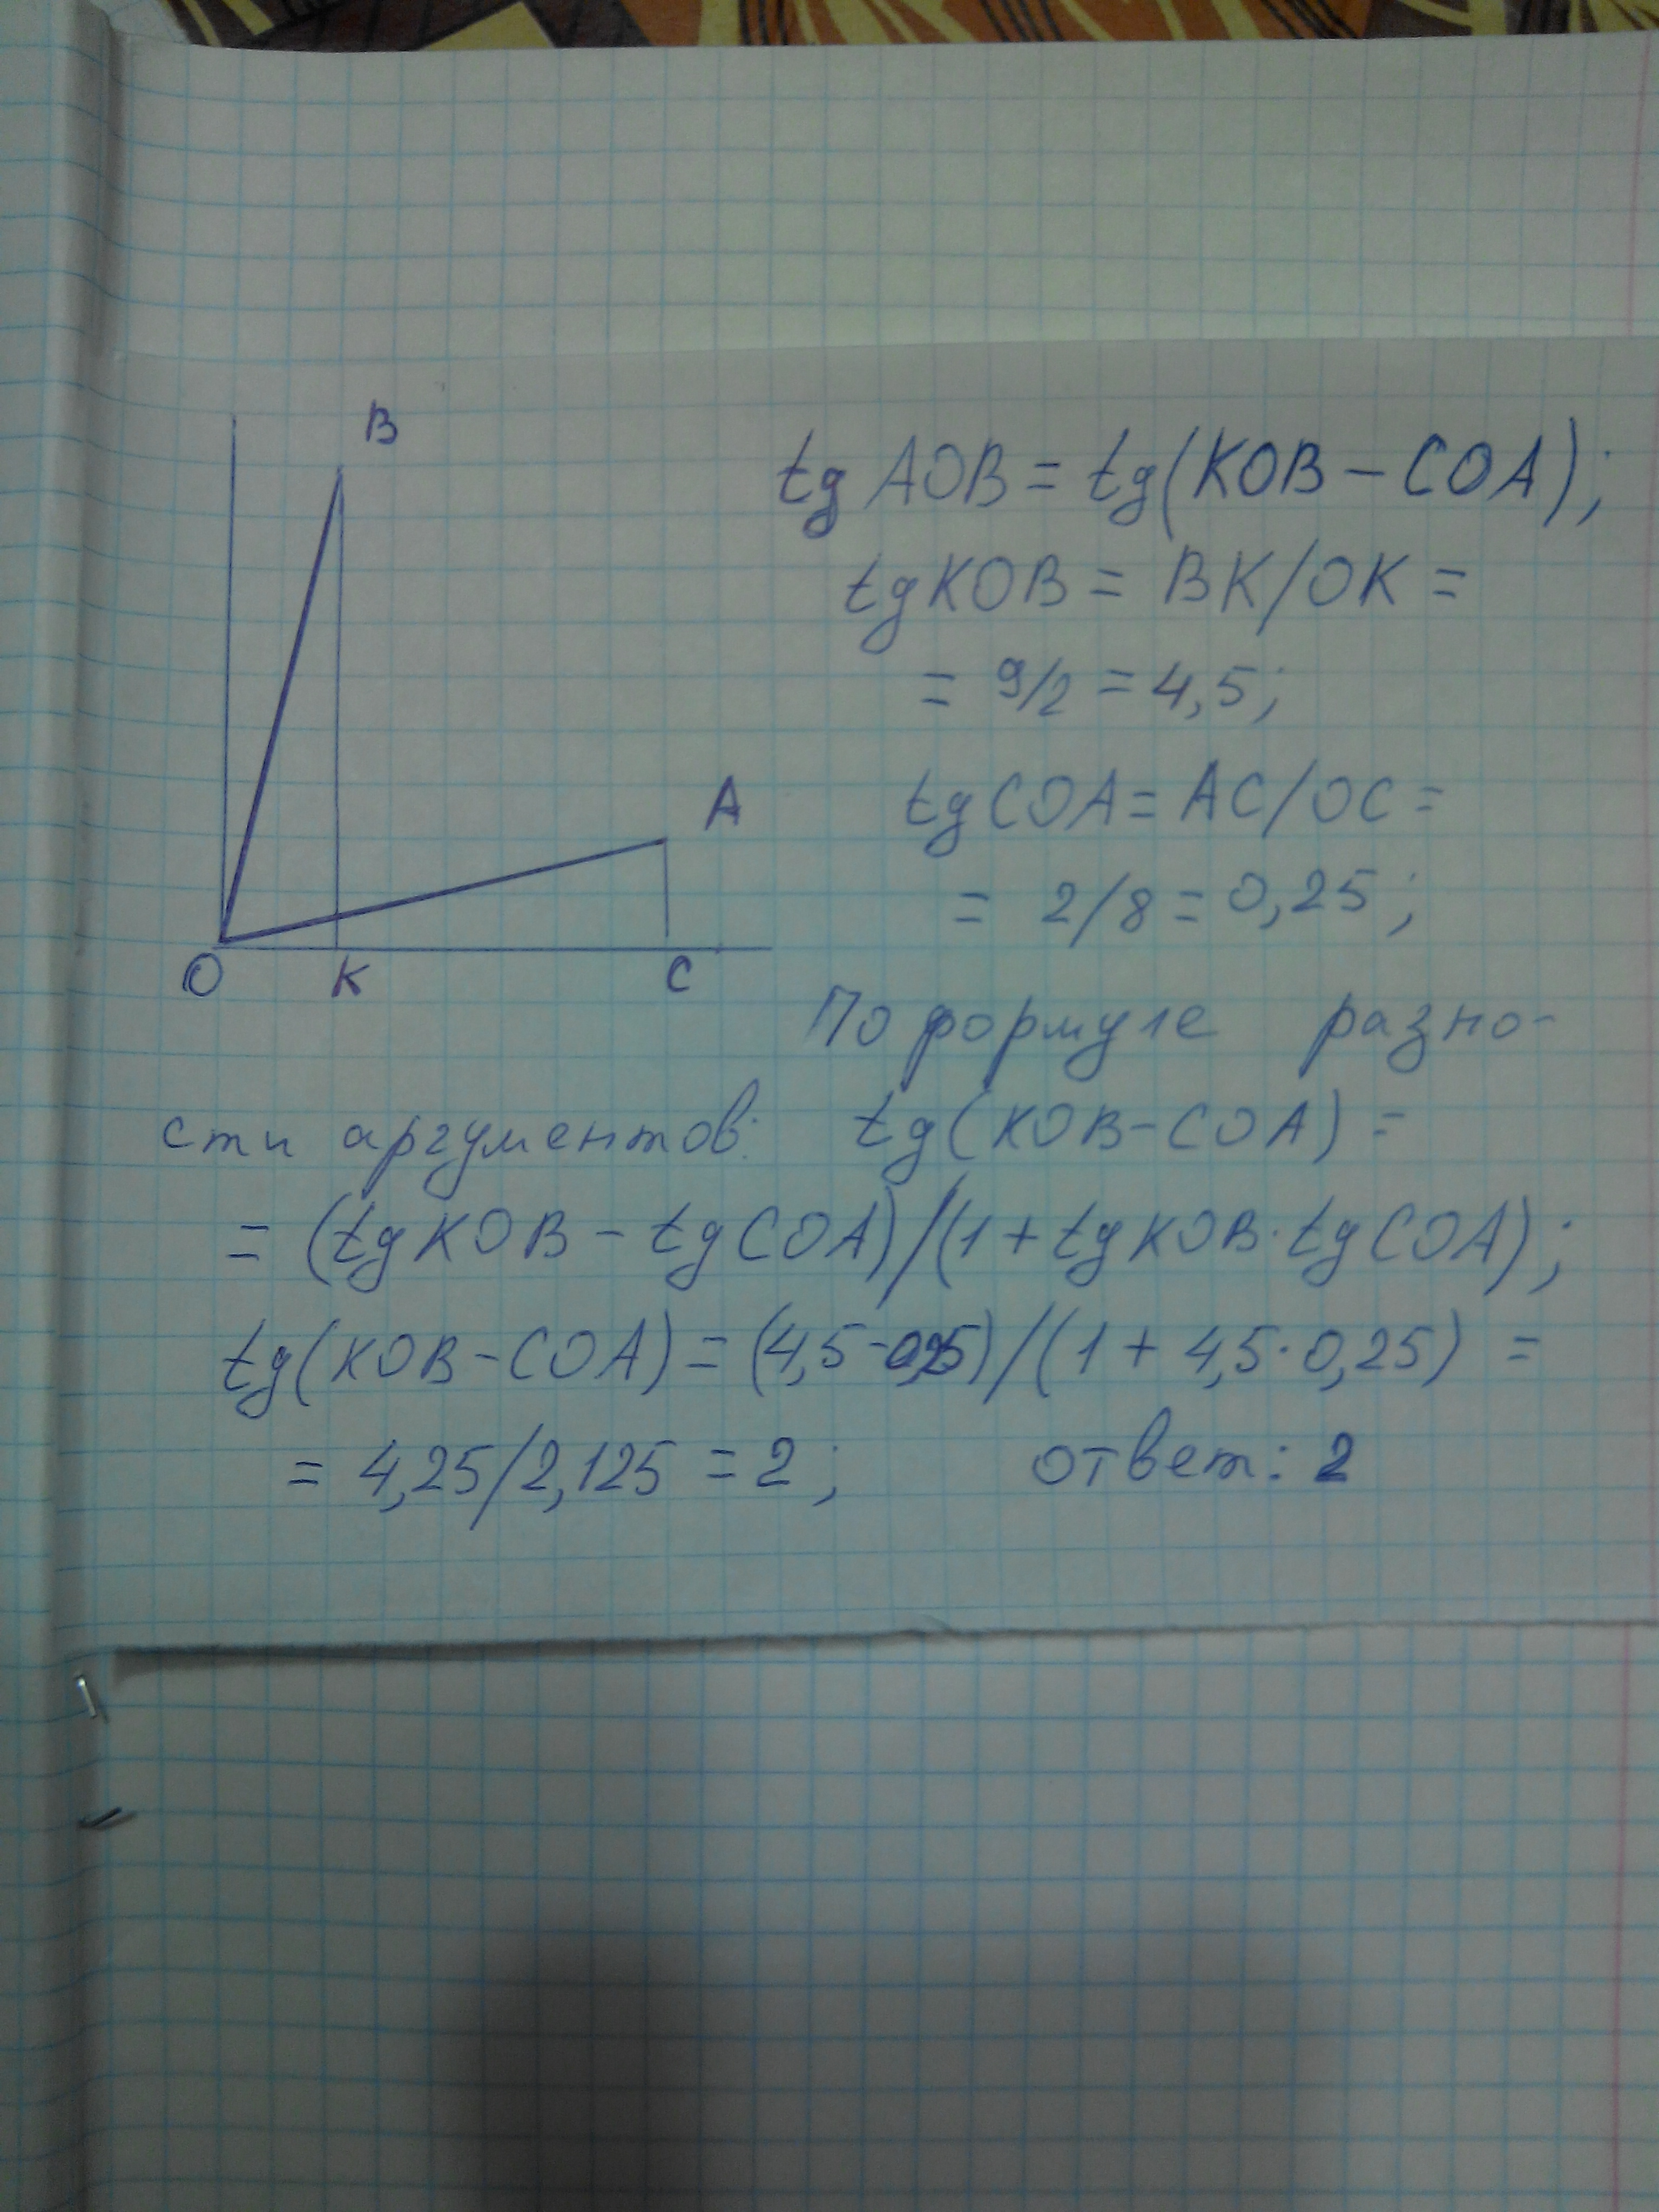 B
A
O K C
tg AOB = tg(KOB – COA);
tg KOB = BK/OK =
= 9/2 = 4,5;
tg COA = AC/OC =
= 2/8 = 0,25;
По формуле разно-
сти аргументов: tg(KOB-COA) =
= (tg KOB – tg COA)/(1 + tg KOB · tg COA);
tg(KOB-COA) = (4,5-0,25)/(1 + 4,5·0,25) =
= 4,25/2,125 = 2; ответ: 2